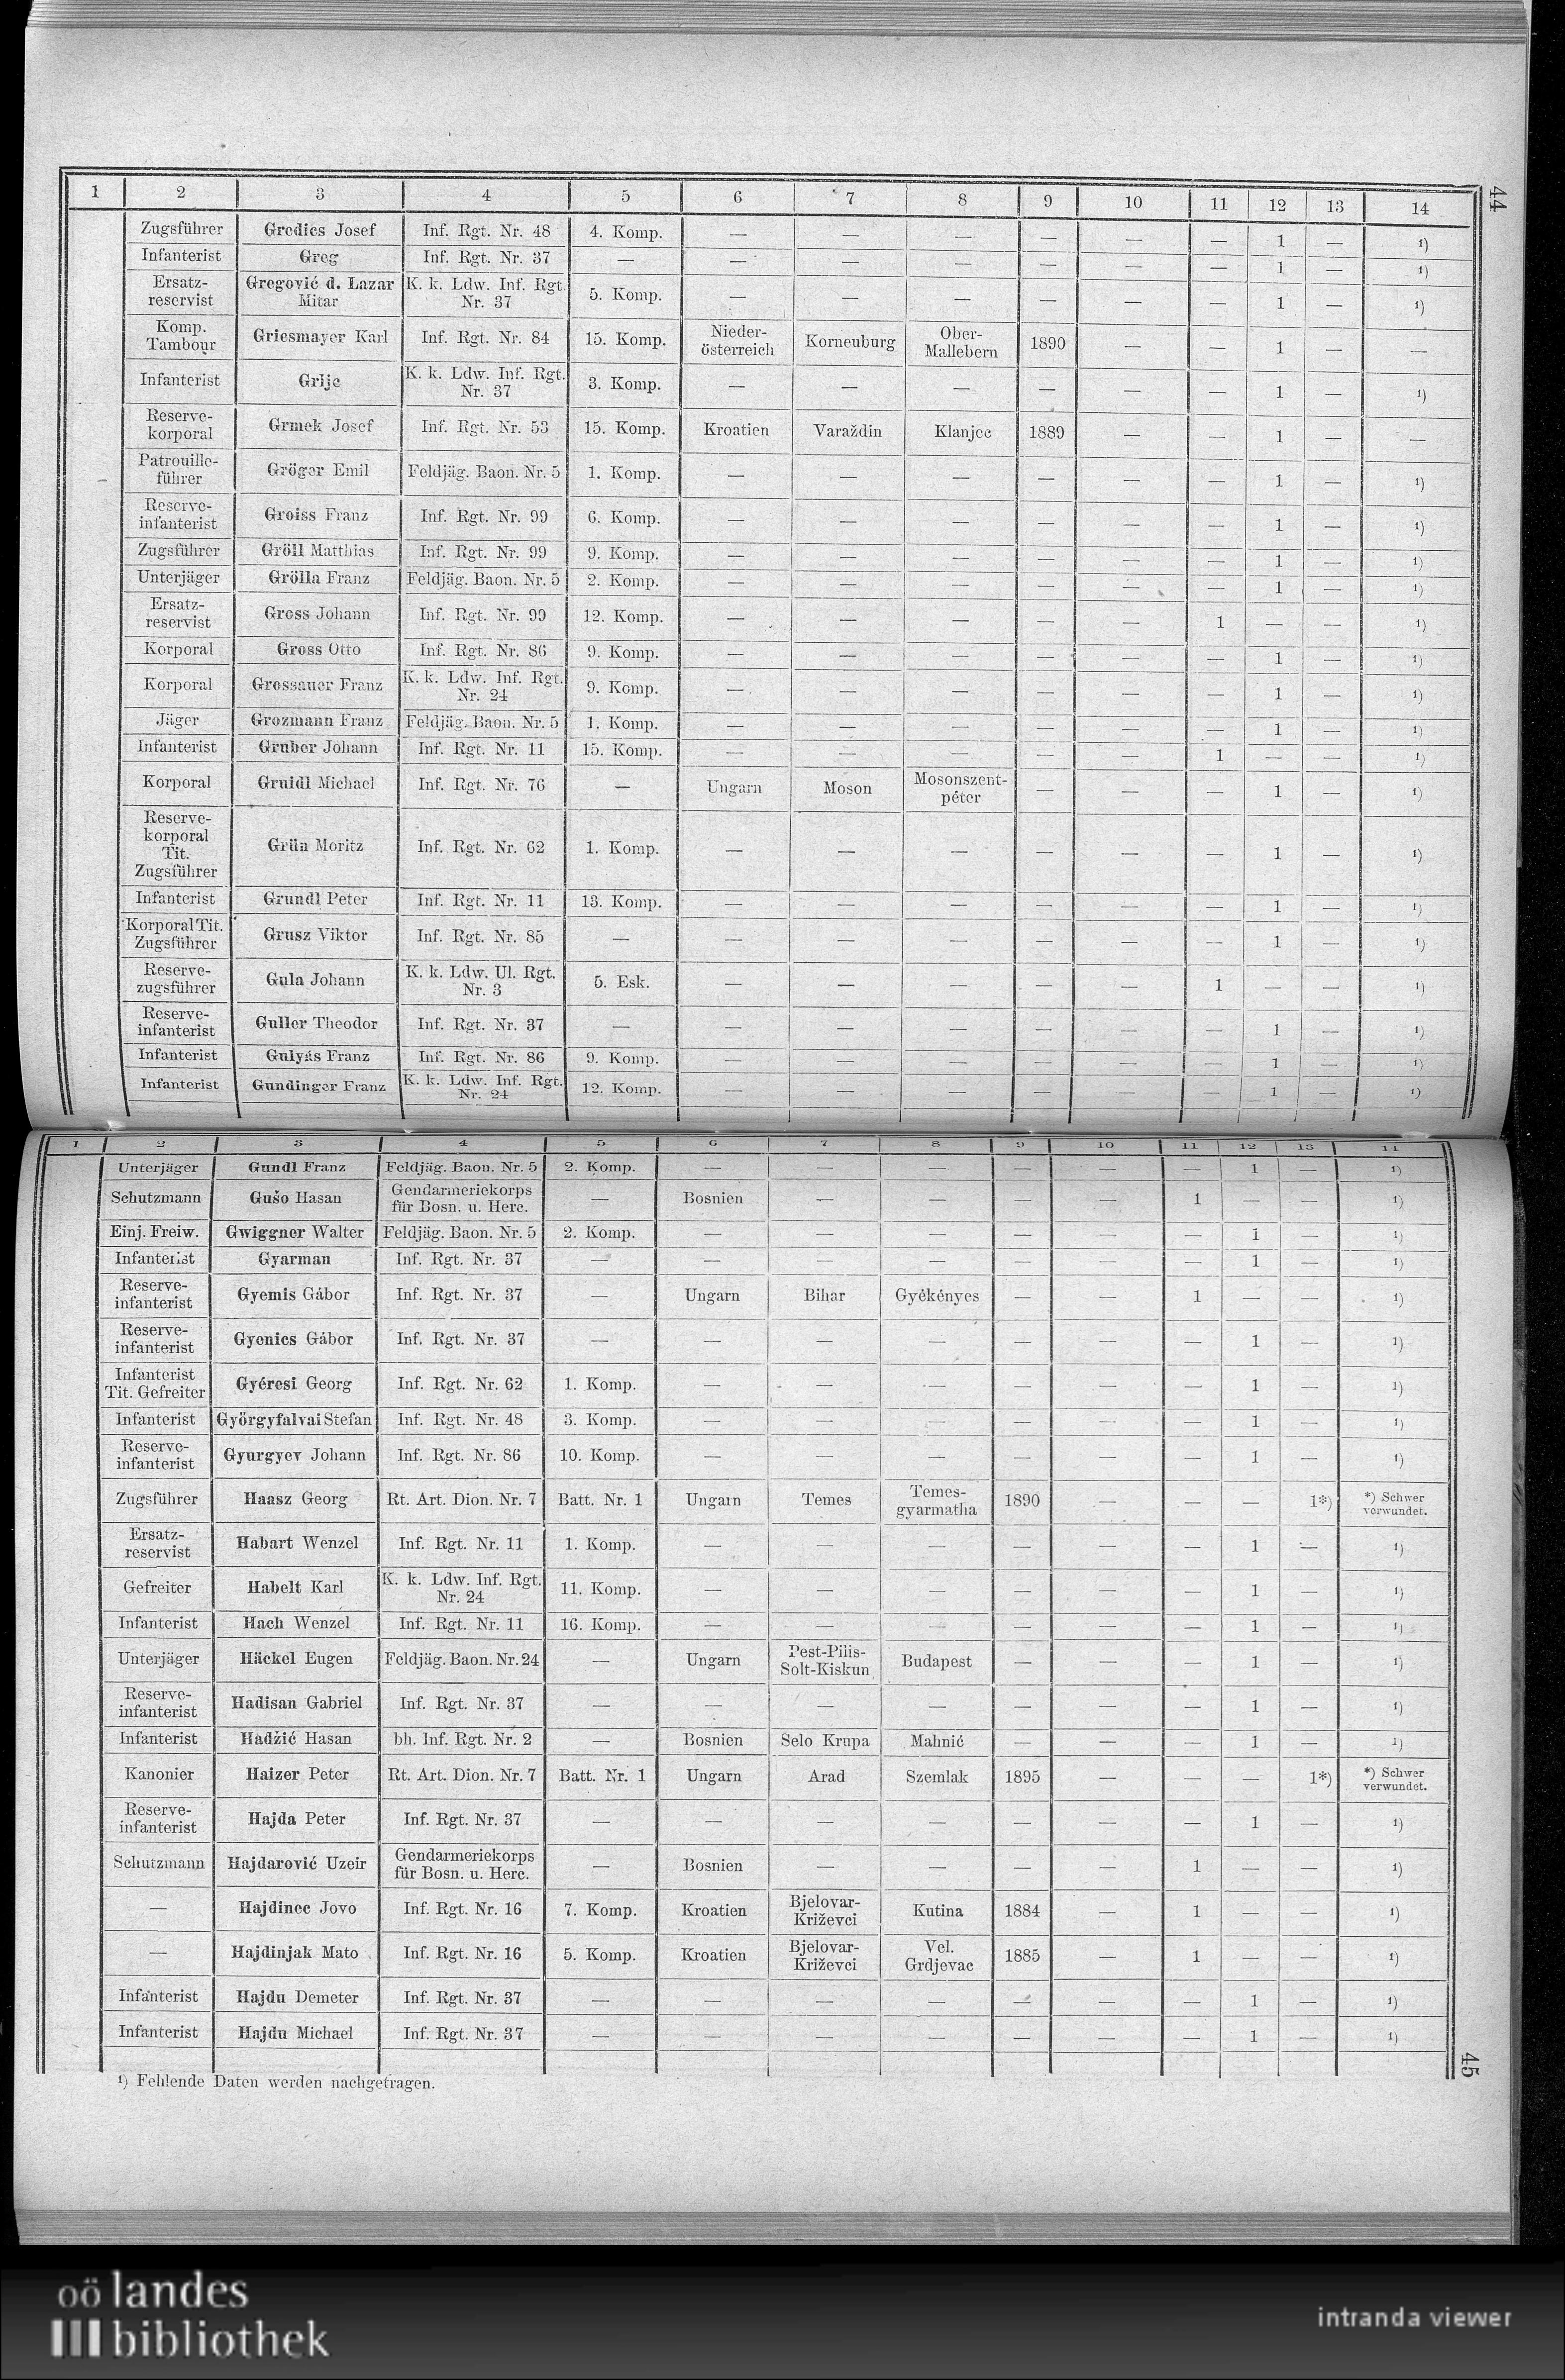 44
1 2 3 4 5 6 7 8 9 10 11 12 13 14
Zugsführer Gredics Josef Inf. Rgt. Nr. 48 4. Komp. — — — — — — 1 — ¹)
Infanterist Greg Inf. Rgt. Nr. 37 — — — — — — — 1 — ¹)
Ersatz- Gregović d. Lazar K. k. Ldw. Inf. Rgt.
reservist Mitar Nr. 37 5. Komp. — — — — — — 1 — ¹)
Komp. Nieder- Ober-
Tambour Griesmayer Karl Inf. Rgt. Nr. 84 15. Komp. österreich Korneuburg Mallebern 1890 — — 1 — —
Infanterist Grije K. k. Ldw. Inf. Rgt.
Nr. 37 3. Komp. — — — — — — 1 — ¹)
Reserve-
korporal Grmek Josef Inf. Rgt. Nr. 53 15. Komp. Kroatien Varaždin Klanjec 1889 — — 1 — —
Patrouille-
führer Gröger Emil Feldjäg. Baon. Nr. 5 1. Komp. — — — — — — 1 — ¹)
Reserve-
infanterist Groiss Franz Inf. Rgt. Nr. 99 6. Komp. — — — — — — 1 — ¹)
Zugsführer Gröll Matthias Inf. Rgt. Nr. 99 9. Komp. — — — — — — 1 — ¹)
Unterjäger Grölla Franz Feldjäg. Baon. Nr. 5 2. Komp. — — — — — — 1 — ¹)
Ersatz-
reservist Gross Johann Inf. Rgt. Nr. 99 12. Komp. — — — — — 1 — — ¹)
Korporal Gross Otto Inf. Rgt. Nr. 86 9. Komp. — — — — — — 1 — ¹)
Korporal Grossauer Franz K. k. Ldw. Inf. Rgt.
Nr. 24 9. Komp. — — — — — — 1 — ¹)
Jäger Grozmann Franz Feldjäg. Baon. Nr. 5 1. Komp. — — — — — — 1 — ¹)
Infanterist Gruber Johann Inf. Rgt. Nr. 11 15. Komp. — — — — — 1 — — ¹)
Korporal Gruidl Michael Inf. Rgt. Nr. 76 — Ungarn Moson Mosonszent-
péter — — — 1 — ¹)
Reserve-
korporal
Tit.
Zugsführer Grün Moritz Inf. Rgt. Nr. 62 1. Komp. — — — — — — 1 — ¹)
Infanterist Grundl Peter Inf. Rgt. Nr. 11 13. Komp. — — — — — — 1 — ¹)
Korporal Tit.
Zugsführer Grusz Viktor Inf. Rgt. Nr. 85 — — — — — — — 1 — ¹)
Reserve- K. k. Ldw. Ul. Rgt.
zugsführer Gula Johann Nr. 3 5. Esk. — — — — — 1 — — ¹)
Reserve-
infanterist Guller Theodor Inf. Rgt. Nr. 37 — — — — — — — 1 — ¹)
Infanterist Gulyás Franz Inf. Rgt. Nr. 86 9. Komp. — — — — — — 1 — ¹)
Infanterist Gundinger Franz K. k. Ldw. Inf. Rgt.
Nr. 24 12. Komp. — — — — — — 1 — ¹)
1 2 3 4 5 6 7 8 9 10 11 12 13 14
Unterjäger Gundl Franz Feldjäg. Baon. Nr. 5 2. Komp. — — — — — — 1 — ¹)
Schutzmann Gušo Hasan Gendarmeriekorps
für Bosn. u. Herc. — Bosnien — — — — 1 — — ¹)
Einj. Freiw. Gwiggner Walter Feldjäg. Baon. Nr. 5 2. Komp. — — — — — — 1 — ¹)
Infanterist Gyarman Inf. Rgt. Nr. 37 — — — — — — — 1 — ¹)
Reserve-
infanterist Gyemis Gábor Inf. Rgt. Nr. 37 — Ungarn Bihar Gyékényes — — 1 — — ¹)
Reserve-
infanterist Gyenics Gábor Inf. Rgt. Nr. 37 — — — — — — — 1 — ¹)
Infanterist
Tit. Gefreiter Gyéresi Georg Inf. Rgt. Nr. 62 1. Komp. — — — — — — 1 — ¹)
Infanterist Györgyfalvai Stefan Inf. Rgt. Nr. 48 3. Komp. — — — — — — 1 — ¹)
Reserve-
infanterist Gyurgyev Johann Inf. Rgt. Nr. 86 10. Komp. — — — — — — 1 — ¹)
Zugsführer Haasz Georg Rt. Art. Dion. Nr. 7 Batt. Nr. 1 Ungarn Temes Temes-
gyarmatha 1890 — — — 1*) *) Schwer
verwundet.
Ersatz-
reservist Habart Wenzel Inf. Rgt. Nr. 11 1. Komp. — — — — — — 1 — ¹)
Gefreiter Habelt Karl K. k. Ldw. Inf. Rgt.
Nr. 24 11. Komp. — — — — — — 1 — ¹)
Infanterist Hach Wenzel Inf. Rgt. Nr. 11 16. Komp. — — — — — — 1 — ¹)
Unterjäger Häckel Eugen Feldjäg. Baon. Nr. 24 — Ungarn Pest-Pilis-
Solt-Kiskun Budapest — — — 1 — ¹)
Reserve-
infanterist Hadisan Gabriel Inf. Rgt. Nr. 37 — — — — — — — 1 — ¹)
Infanterist Hadžić Hasan bh. Inf. Rgt. Nr. 2 — Bosnien Selo Krupa Mahnić — — — 1 — ¹)
Kanonier Haizer Peter Rt. Art. Dion. Nr. 7 Batt. Nr. 1 Ungarn Arad Szemlak 1895 — — — 1*) *) Schwer
verwundet.
Reserve-
infanterist Hajda Peter Inf. Rgt. Nr. 37 — — — — — — — 1 — ¹)
Schutzmann Hajdarović Uzeir Gendarmeriekorps
für Bosn. u. Herc. — Bosnien — — — — 1 — — ¹)
— Hajdinec Jovo Inf. Rgt. Nr. 16 7. Komp. Kroatien Bjelovar-
Križevci Kutina 1884 — 1 — — ¹)
— Hajdinjak Mato Inf. Rgt. Nr. 16 5. Komp. Kroatien Bjelovar- Vel.
Križevci Grdjevac 1885 — 1 — — ¹)
Infanterist Hajdu Demeter Inf. Rgt. Nr. 37 — — — — — — — 1 — ¹)
Infanterist Hajdu Michael Inf. Rgt. Nr. 37 — — — — — — — 1 — ¹)
¹) Fehlende Daten werden nachgetragen.
45
oö landes
bibliothek
intranda viewer